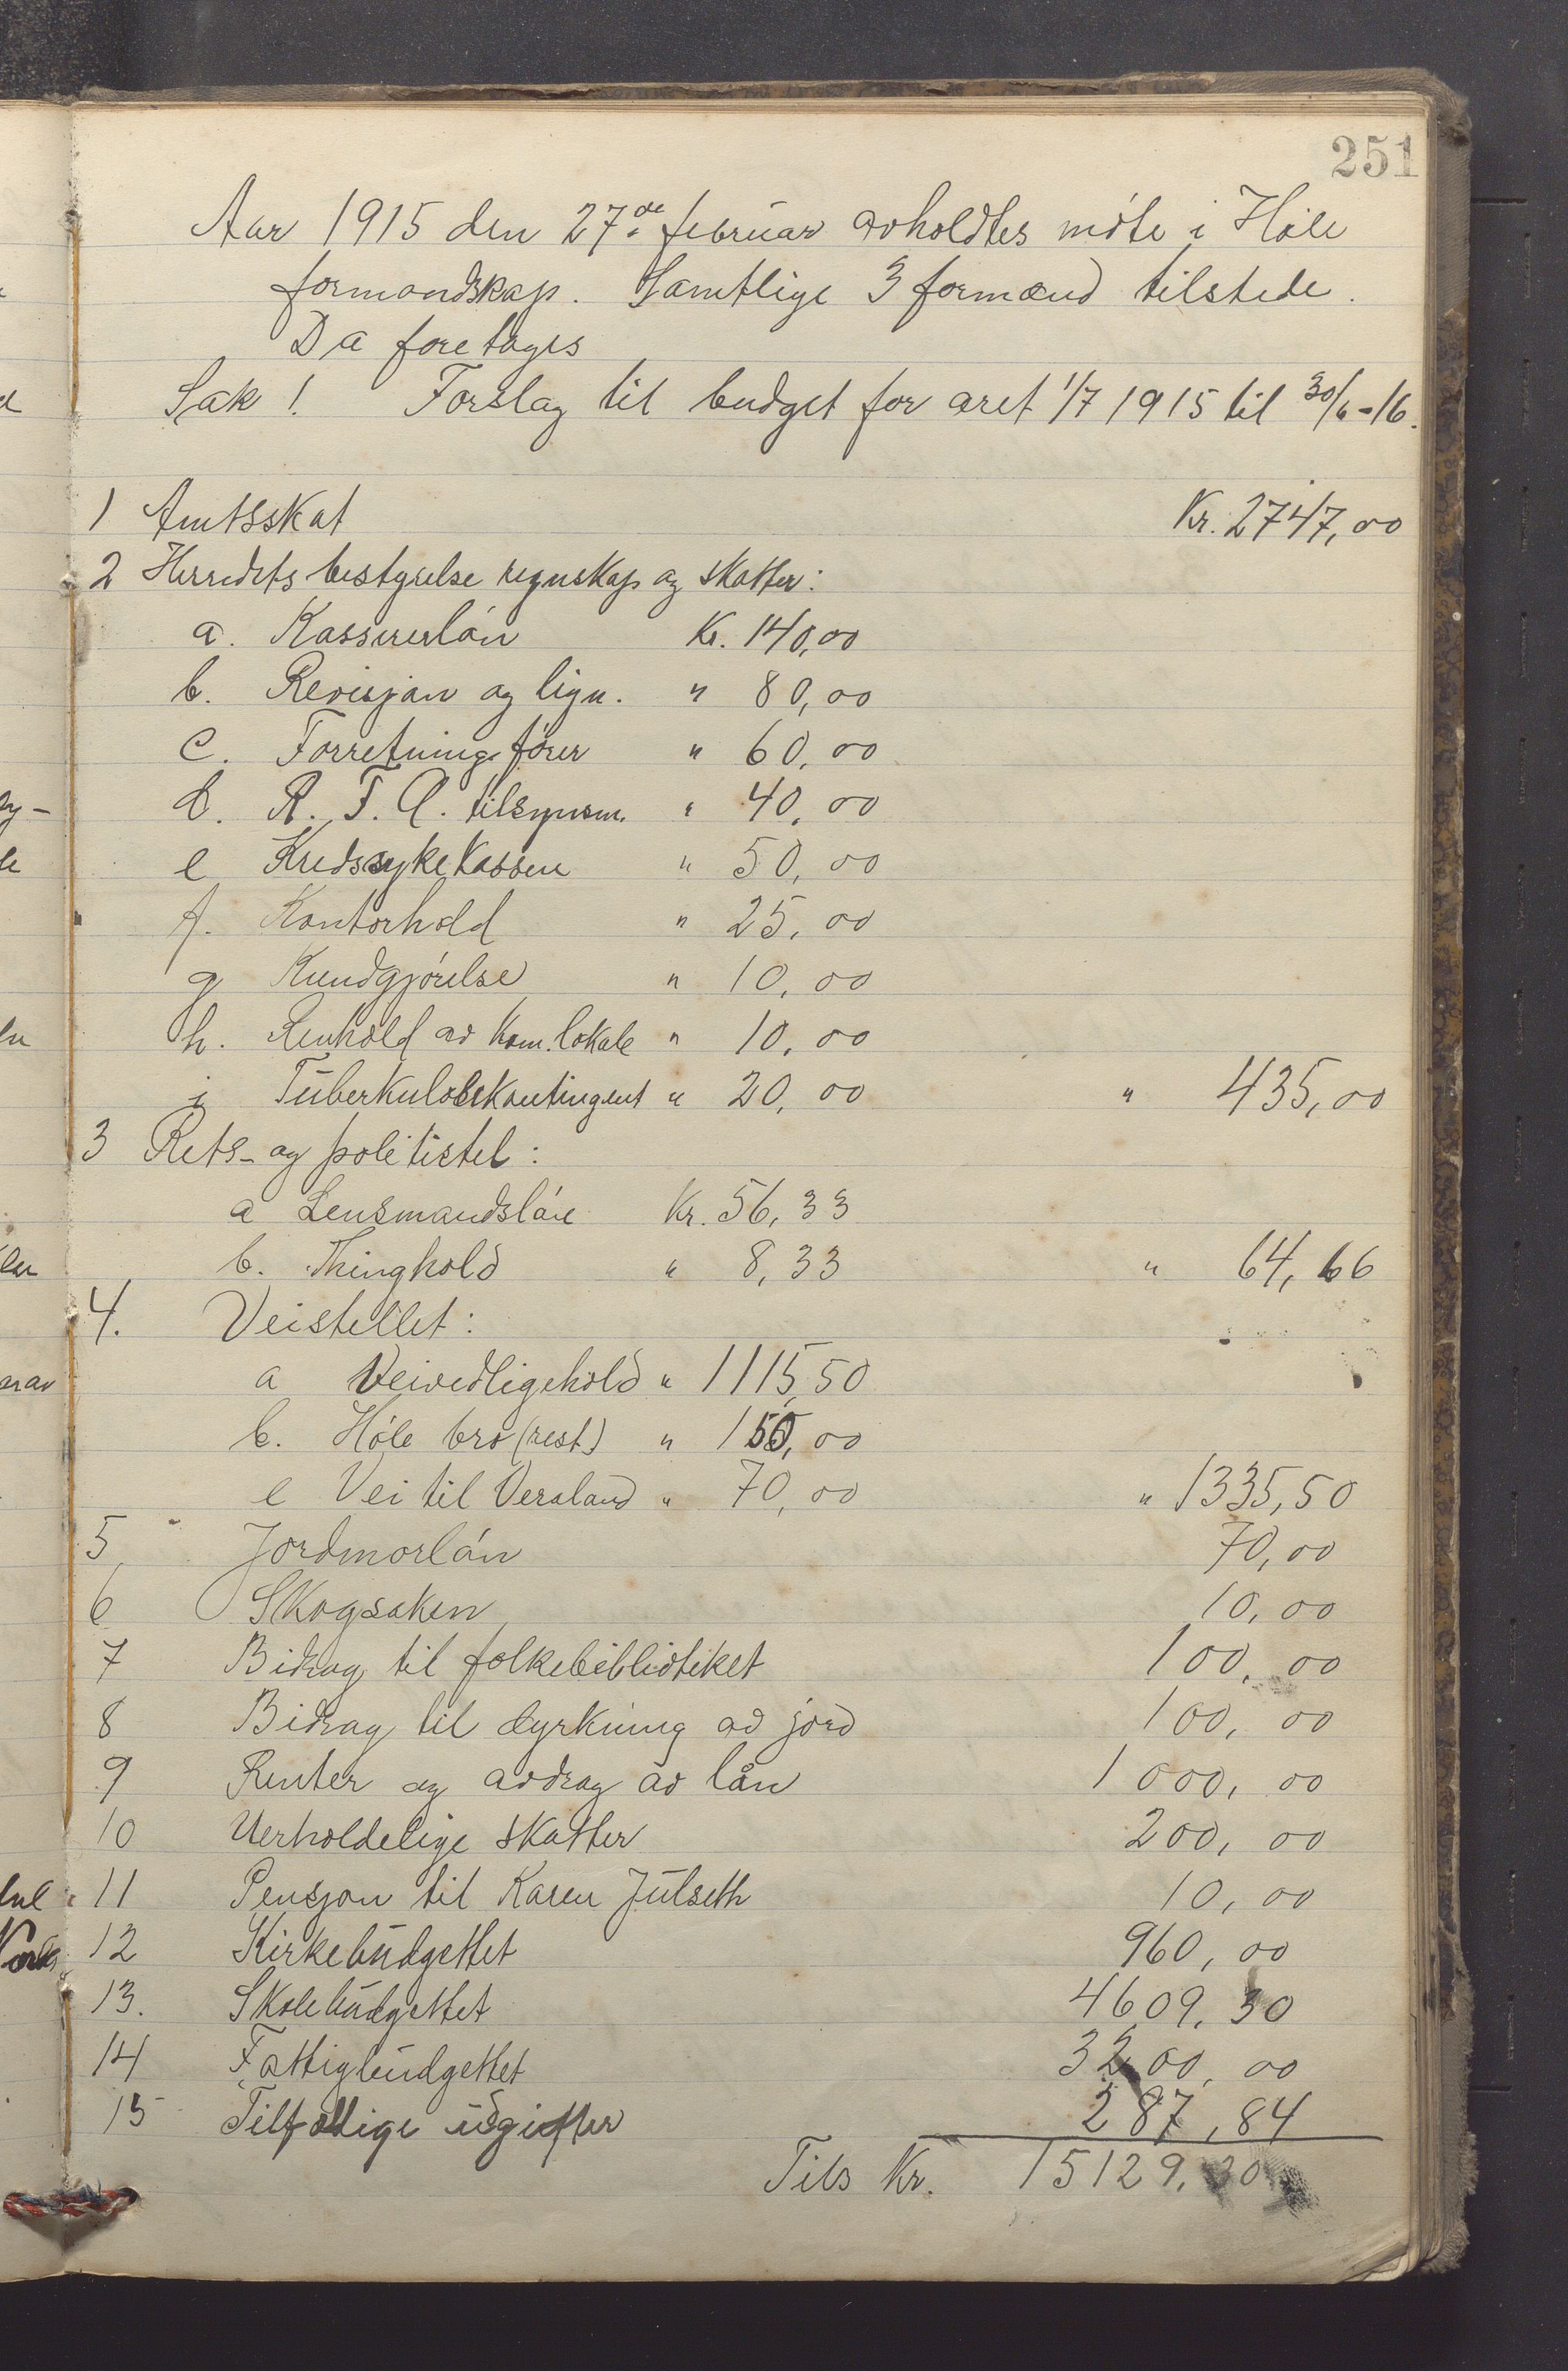 251
Aar 1915 den 27de februar avholdtes møte i Høle
formandskap. Samtlige 3 formænd tilstede.
Da foretages
Sak 1. Forslag til budget for aret 1/7 1915 til 30/6-16.
1 Amtsskat Kr. 2747,00
2 Herredets bestyrelse regnskap og skatter:
a. Kassererløn Kr. 140,00
b. Revisjon og lign. " 80,00
c. Forretningsfører " 60,00
d. R. F. A. tilsynsm. " 40,00
e Kredssykekassen " 50,00
f. Kontorhold " 25,00
g Kundgjørelse " 10,00
h. Renhold av kom. lokale " 10,00
i Tuberkulosekontingent " 20,00 " 435,00
3 Rets- og politistel:
a Lensmandsløn Kr. 56,33
b. Thinghold " 8,33 " 64,66
4. Veistellet:
a Veivedligehold " 1115,50
b. Høle bro (rest) " 150,00
c Vei til Veraland " 70,00 " 1335,50
5 Jordmorløn 70,00
6 Skogsaken 10,00
7 Bidrag til folkebibliotiket 100,00
8 Bidrag til dyrkning av jord 100,00
9 Renter og avdrag av lån 1000,00
10 Uerholdelige skatter 200,00
11 Pensjon til Karen Julseth 10,00
12 Kirkebudgettet 960,00
13. Skolebudgettet 4609,30
14 Fattigbudgettet 3200,00
15 Tilfældige udgifter 287,84
Tils Kr. 15129,30